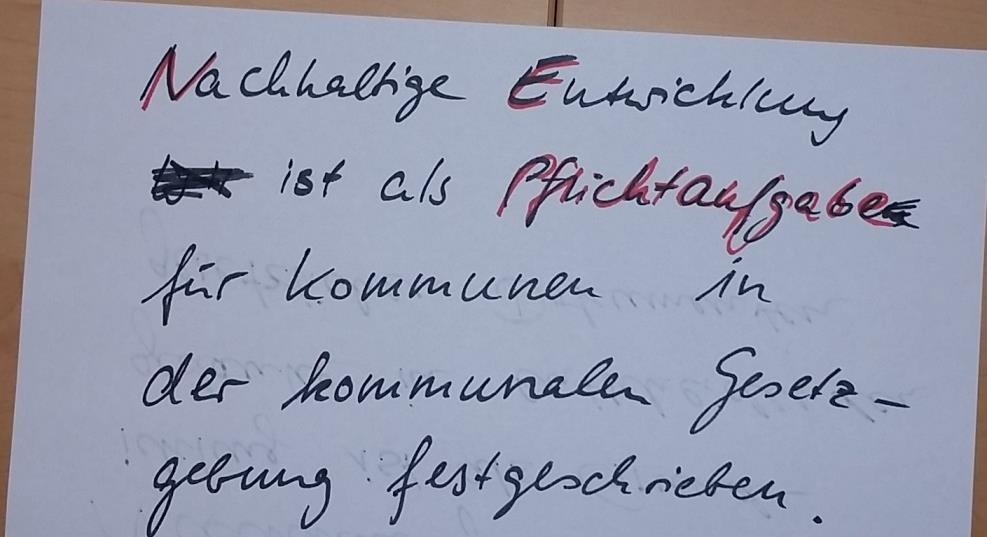 Nachhaltige Entwicklung
ist als Pflichtaufgabe
für Kommunen in
der kommunalen Gesetz-
gebung festgeschrieben.